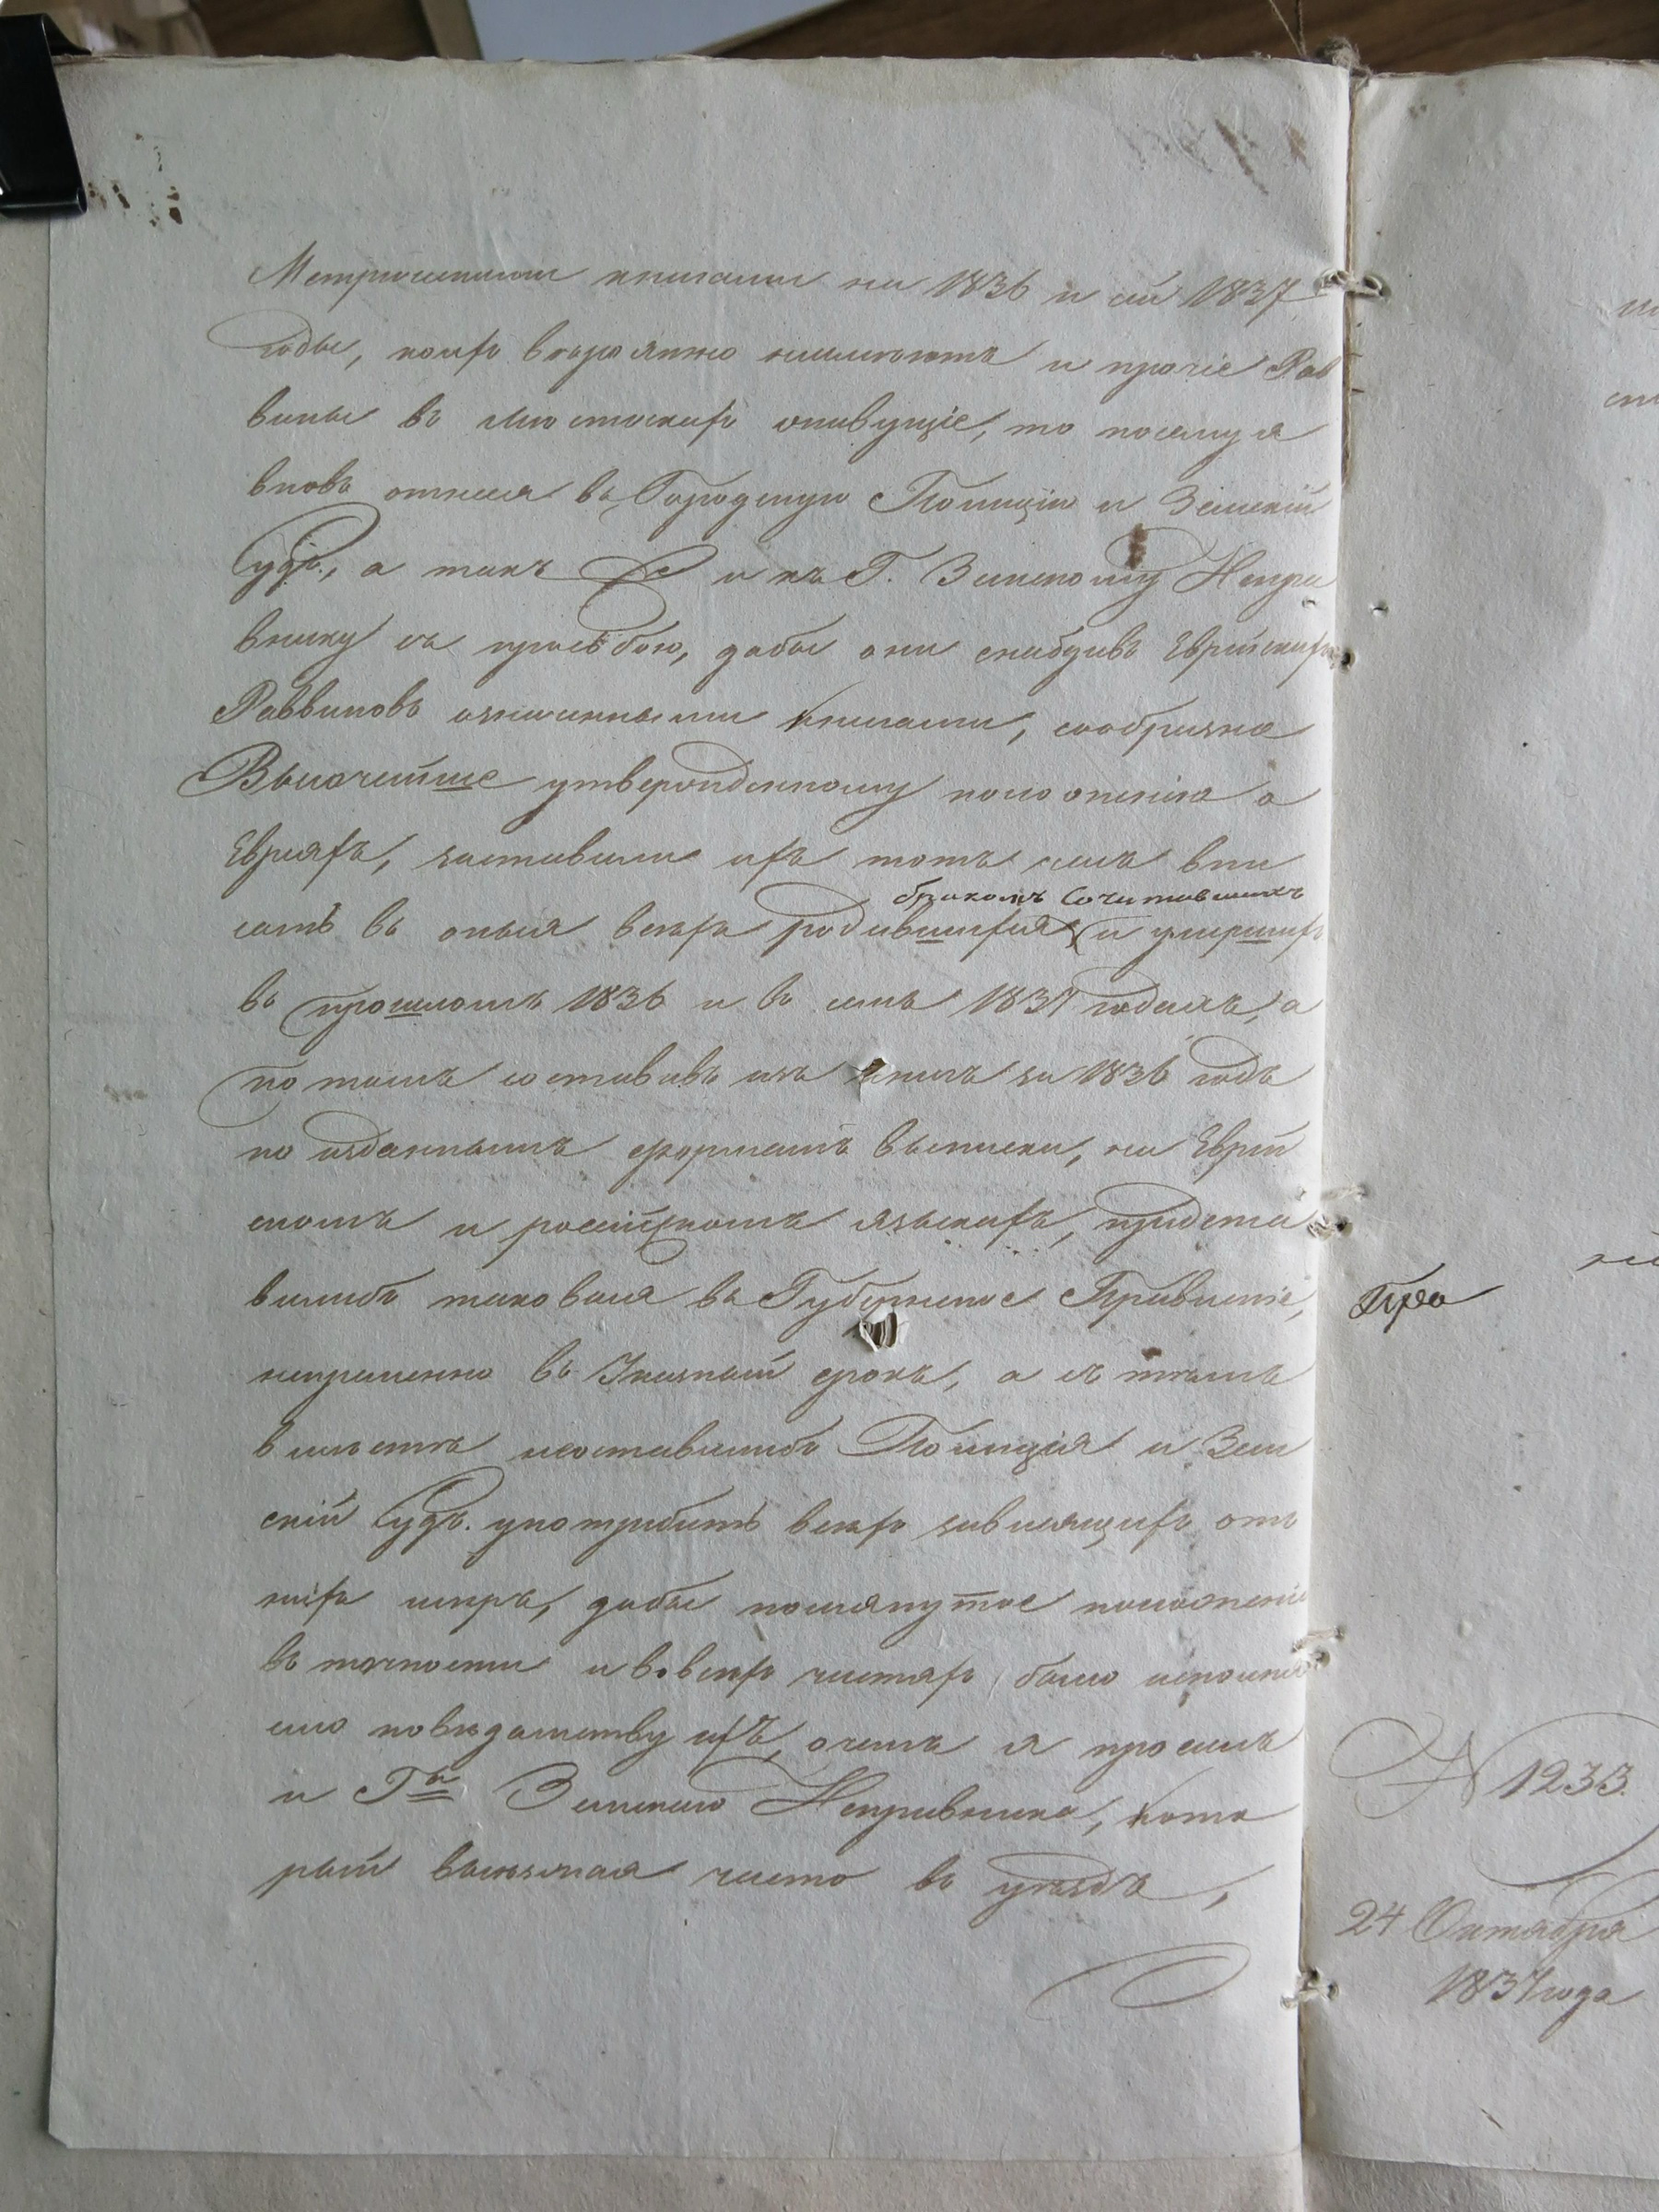 Метрическими книгами на 1836 и сей 1837
годы, коихъ вероятно неимеютъ и прочіе Рав
вины въ местечкахъ живущіе, то посему я
вновь отнеся въ Городскую Полицію и Земскій
Судъ, а такъ же и къ Г. Земскому Испра
внику съ прозьбою, дабы они снабдивъ Еврейскихъ
Раввиновъ означенными книгами, сообразно
Высочайше утвержденному положенію о
Евреяхъ, заставили ихъ тотъ часъ впи
бракомъ сочитавшихъ
сать въ оныя всехъ родившихся, и умершихъ
въ прошломъ 1836 и въ семъ 1837 годахъ, а
по томъ составивъ изъ книгъ за 1836 годъ
по изданнымъ формамъ выписки, на Еврей
скомъ и россійскомъ языкахъ, предста
вилибъ таковыя въ Губернское Правленіе,
непременно въ Указный срокъ, а съ темъ
вместе неоставилибъ Полиція и Зем
скій Судъ употребить всехъ зависящихъ отъ
нихъ меръ, дабы помянутое положеніе
въ точности и во всехъ частяхъ было исполня
емо поведомству ихъ, очемъ я просилъ
и Гна Земскаго Исправника, кото
рый выезжая часто въ уездъ,
Про
№ 1233.
24 Октября
1837 года